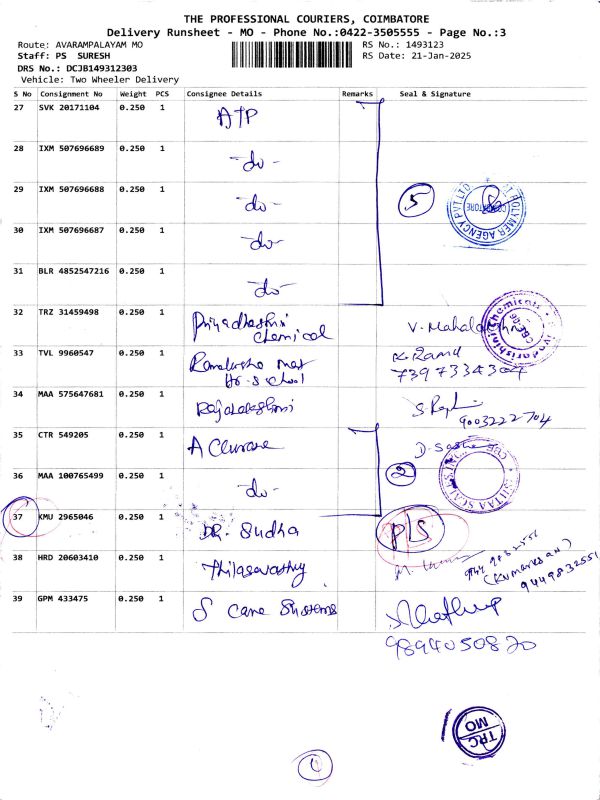 THE PROFESSIONAL COURIERS, COIMBATORE
Delivery Runsheet - MO - Phone No.:0422-3505555 - Page No.:3
Route: AVARAMPALAYAM MO
RS No.: 1493123
Staff: PS SURESH
RS Date: 21-Jan-2025
DRS No.: DCJB149312303
Vehicle: Two Wheeler Delivery
S No Consignment No Weight PCS Consignee Details Remarks Seal & Signature
27 SVK 20171104 0.250 1 ATP
28 IXM 507696689 0.250 1 -do-
29 IXM 507696688 0.250 1 -do- 5
POLYMER AGENCY PVT LTD
COIMBATORE
30 IXM 507696687 0.250 1 -do-
31 BLR 4852547216 0.250 1 -do-
32 TRZ 31459498 0.250 1 Priyadharshni
Chemical
V. Mahalakshmi
Priyadarshini Chemicals
CBE-
33 TVL 9960547 0.250 1
Hr. S School
K. Ramu
7397334304
34 MAA 575647681 0.250 1 Rajalakshmi
9003222704
35 CTR 549205 0.250 1
36 MAA 100765499 0.250 1 -do- 2
37 KMU 2965046 0.250 1 DR. Sudha P|S
38 HRD 20603410 0.250 1 Thilagavathy
944 9832551
(Kumaresan)
9449832551
39 GPM 433475 0.250 1 S Cane Systems
9894050820
TRC
MO